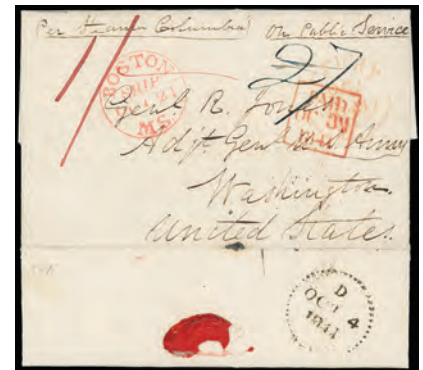 Per Steamer Columbia On Public Service
1/ 27
BOSTON
SHIP
MS.
PAID
1844
Genl R. Jones
Adjt. Genl Army
Washington.
United States.
D
OC 4
1844